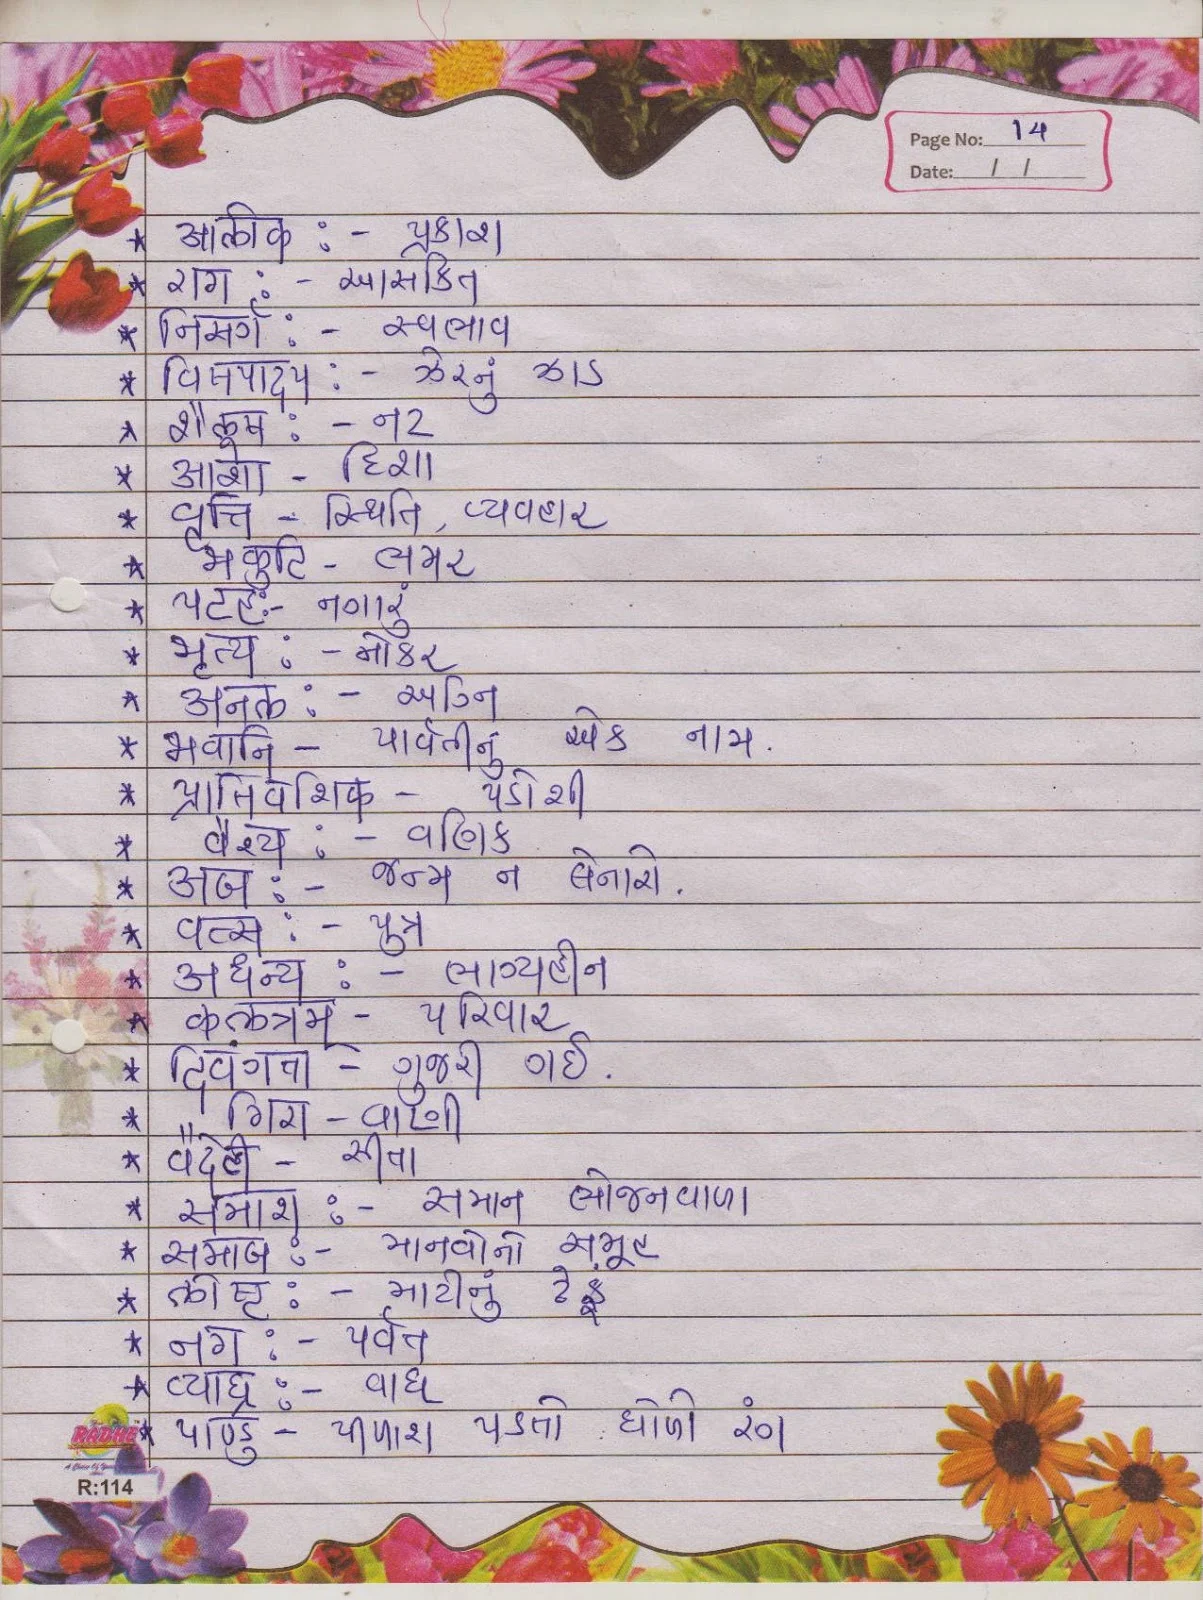 Page No: 14
Date: / /
* आलोक : - પ્રકાશ
* राग : - આસકિત
* निसर्ग : - સ્વભાવ
* विषपादप : - ઝેરનું ઝાડ
* शैलूष : - નટ
* आशा - દિશા
* वृत्ति - સ્થિતિ, વ્યવહાર
* भकुटि - ભમર
* पटह :- નગારું
* भृत्य : - નોકર
* अनल : - અગ્નિ
* भवानि - પાર્વતીનું એક નામ.
* प्रातिवेशिक - પડોશી
* वैश्य : - વણિક
* अज : - જન્મ ન લેનારો.
* वत्स : - પુત્ર
* अधन्य : - ભાગ્યહીન
* कलत्रम् - પરિવાર
* दिवंगता - ગુજરી ગઈ.
* गिरा - વાણી
* वैदेही - સીતા
* समाश : - સમાન ભોજનવાળા
* समाज :- માનવોનો સમૂહ
* लोष्ट : - માટીનું ઢેફું
* नग : - પર્વત
* व्याघ्र :- વાઘ
* पाण्डु - પીળાશ પડતો ધોળો રંગ
RADHE
R:114